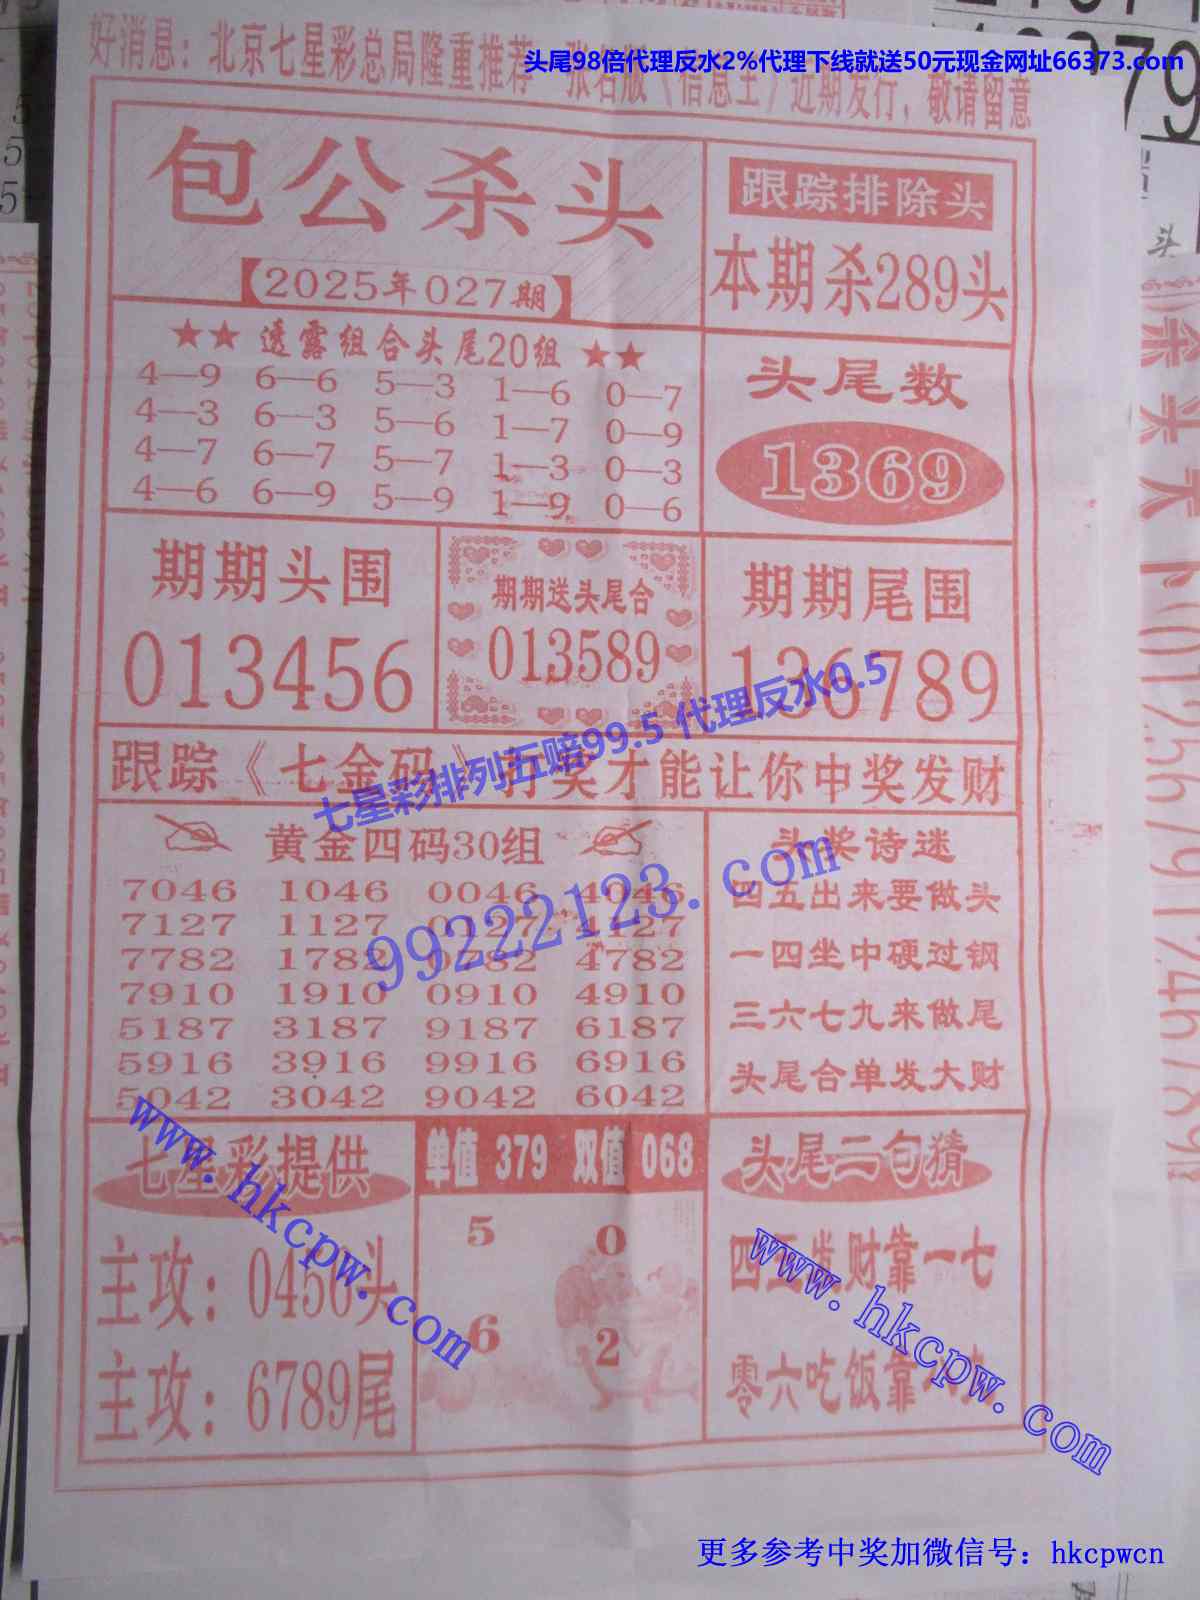 头尾98倍代理反水2%代理下线就送50元现金网址66373.com
好消息：北京七星彩总局隆重推荐 张名版《信息王》近期发行，敬请留意
包公杀头
【2025年027期】
跟踪排除头
本期杀289头
★★ 透露组合头尾20组 ★★
4—9 6—6 5—3 1—6 0—7
4—3 6—3 5—6 1—7 0—9
4—7 6—7 5—7 1—3 0—3
4—6 6—9 5—9 1—9 0—6
头尾数
1369
期期头围
013456
期期送头尾合
013589
期期尾围
136789
七星彩排列五赔99.5 代理反水0.5
跟踪《七金码》 才能让你中奖发财
黄金四码30组
7046 1046 0046 4046
7127 1127 0127 4127
7782 1782 0782 4782
7910 1910 0910 4910
5187 3187 9187 6187
5916 3916 9916 6916
5042 3042 9042 6042
99222123.com
头奖诗迷
四五出来要做头
一四坐中硬过钢
三六七九来做尾
头尾合单发大财
七星彩提供
主攻：0456头
主攻：6789尾
www.hkcpw.com
单值 379 双值 068
5 0
6 2
头尾二句猜
四五发财靠一七
零六吃饭靠
www.hkcpw.com
更多参考中奖加微信号：hkcpwcn